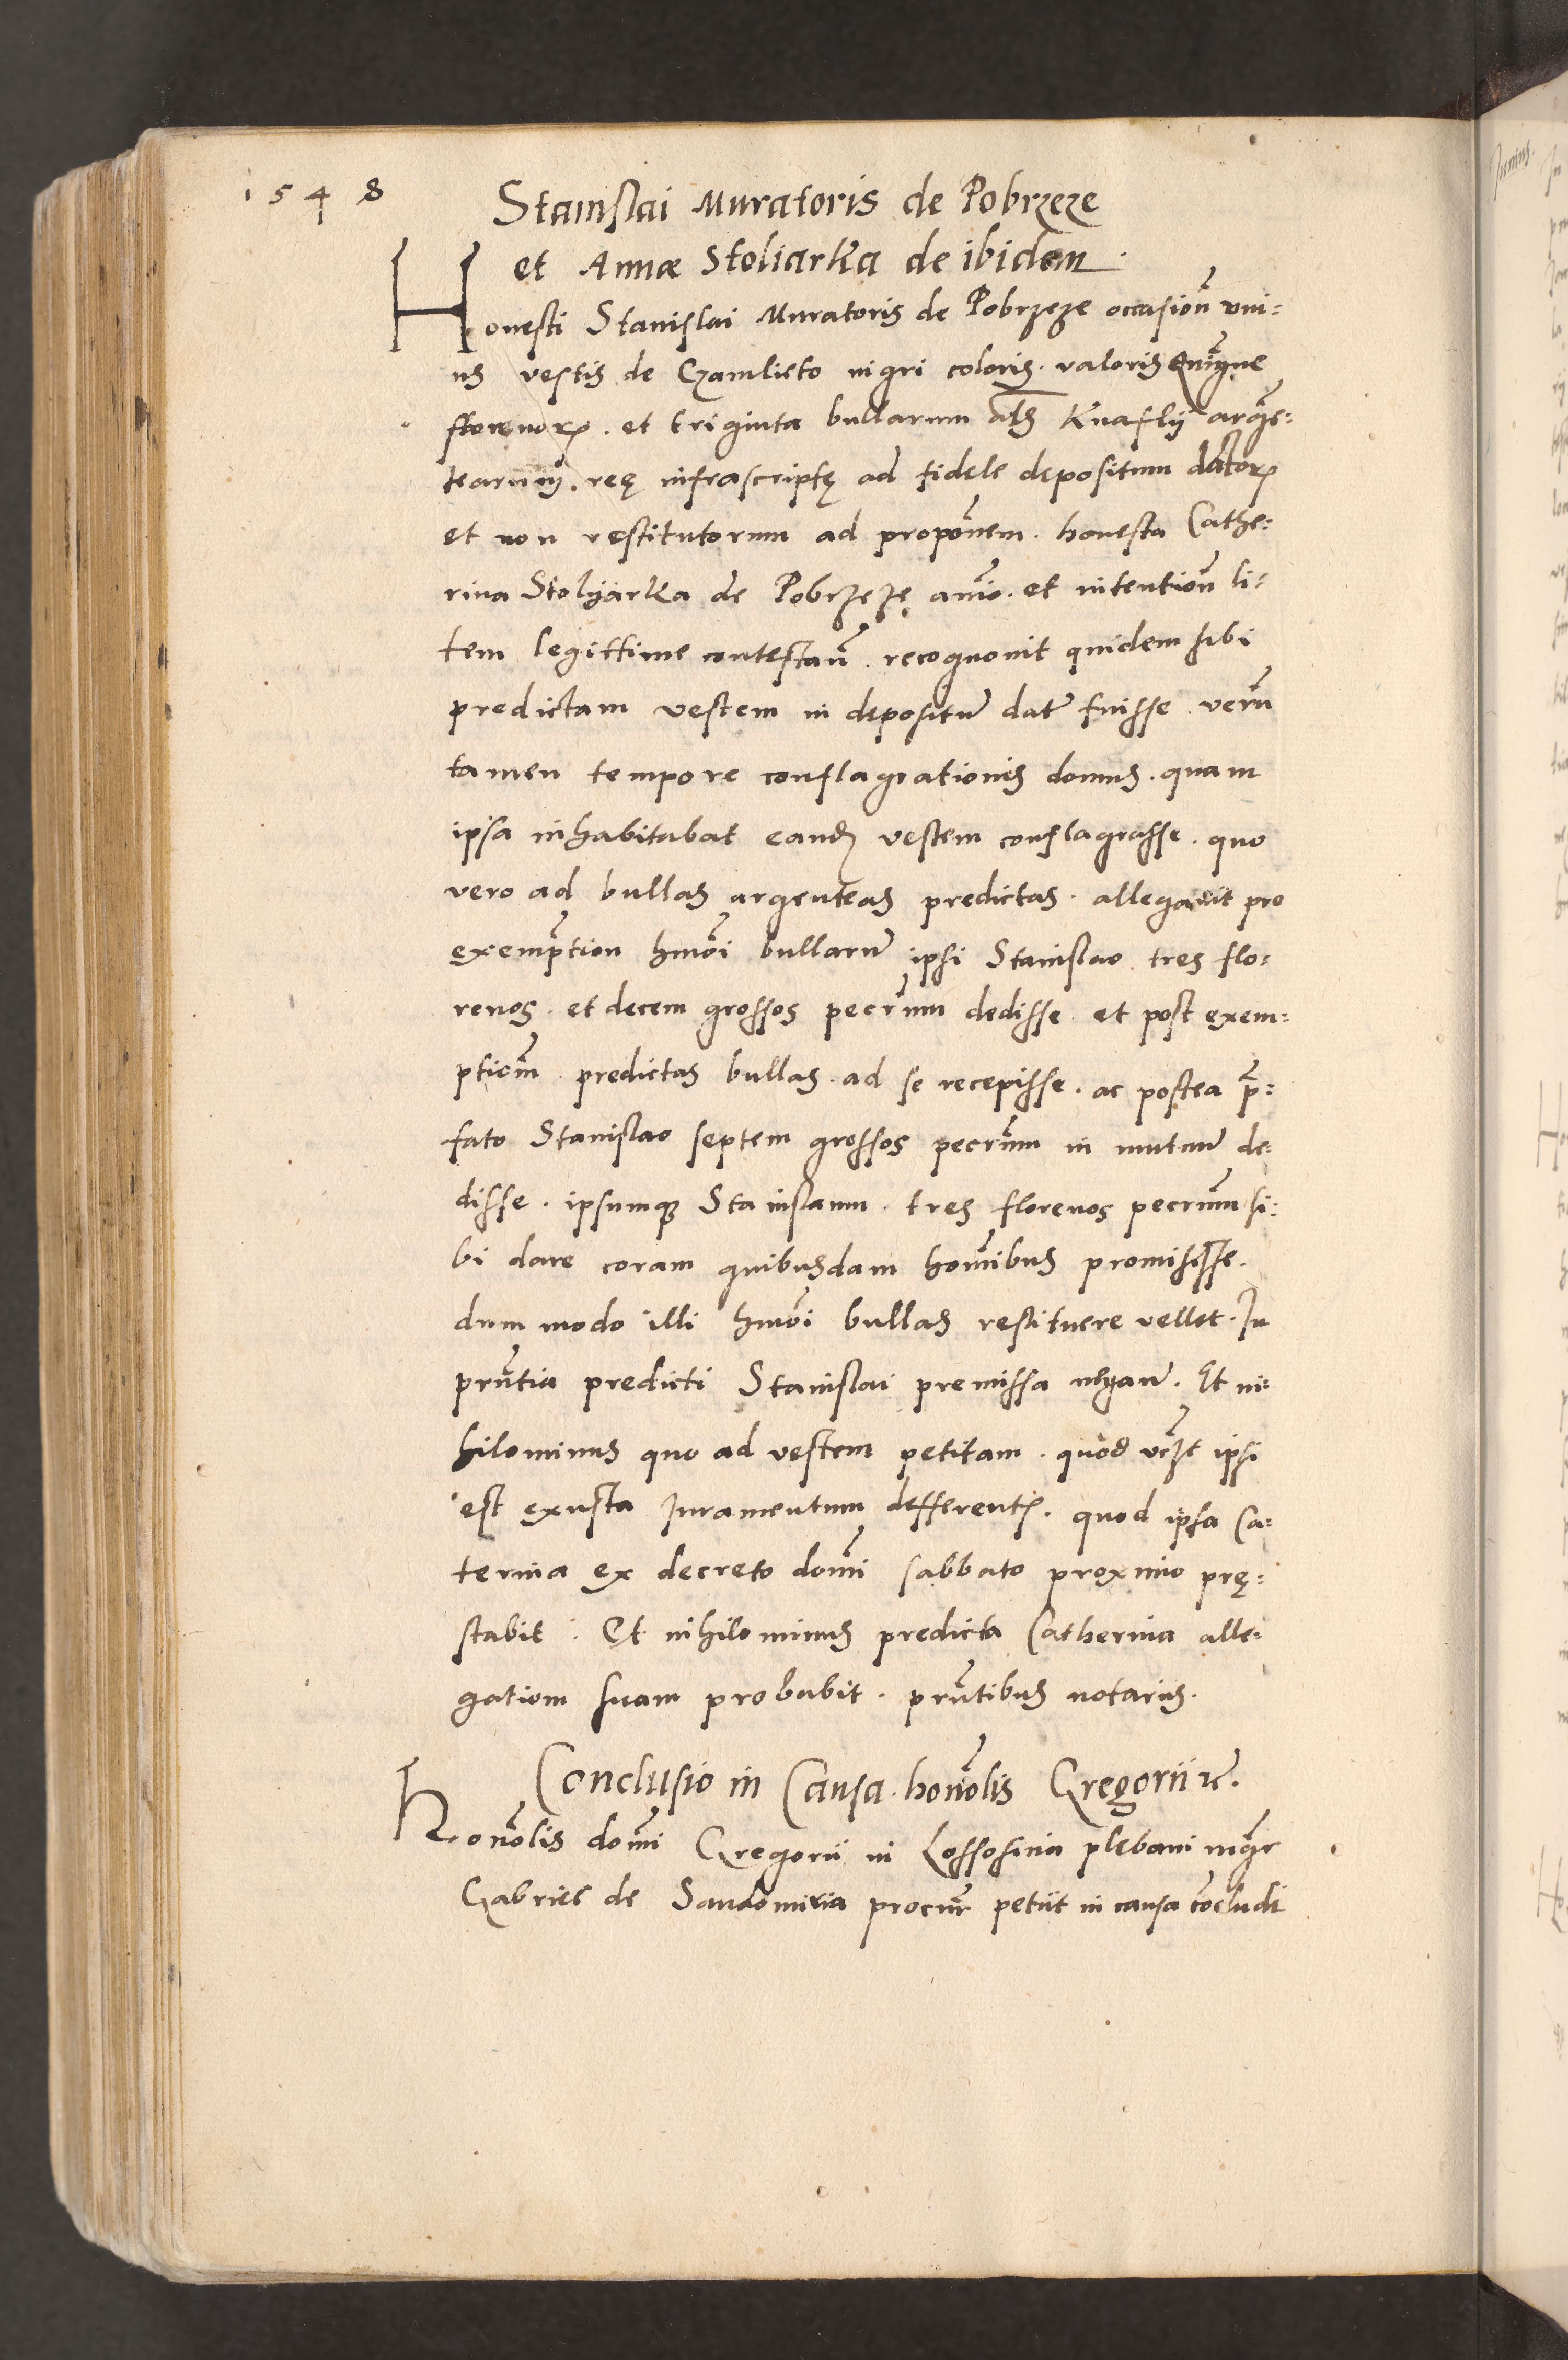 1548
Stanislai Muratoris de Pobrzeze
et Annæ Stoliarka de ibidem.
Honesti Stanislai Muratoris de Pobrzeze occasion̄ uni-
us vestis de Czamlieto nigri coloris. valoris quinque
florenorꝝ. et triginta bullarum al̄s Knaflij argē-
tearum. reę infrascriptę ad fidele depositum datorꝝ
et non restitutorum ad propōnem. honesta Cathe-
rina Stolyarka de Pobrzezę animo. et intention̄ li-
tem legittime contestan̄. recognouit quidem sibi
predictam vestem in depositū datā fuisse. verū
tamen tempore conflagrationis domus. quam
ipsa inhabitabat eandē vestem conflagrasse. quo
vero ad bullas argenteas predictas. allegauit pro
exemption hmōi bullarū ipsi Stanislao tres flo-
renos. et decem grossos pecrūm dedisse et post exem-
ptiōm predictas bullas. ad se recepisse. ac postea p̄-
fato Stanislao septem grossos pecrūm in mutuū de-
disse. ipsumqꝫ Stanislaum. tres florenos pecrūm si-
bi dare coram quibusdam homībus promisisse.
dum modo illi hmōi bullas restituere vellet. In
prn̄tia predicti Stanislai premissa negan̄. Et ni-
hilominus quo ad vestem petitam. quod ipsi
est exusta Juramentum defferentꝭ. quod ipsa Ca-
terina ex decreto domī sabbato proximo prę-
stabit. Et nihilominus predicta Catherina alle-
gatiom suam probabit. prn̄tibus notarijs.
Conclusio in Causa. honōlis Gregorii ꝛc̄.
Honōlis domī Gregorii in Lossosina plebani mḡr
Gabriel de Sandomiria procur̄ petiit in causa cōcludi